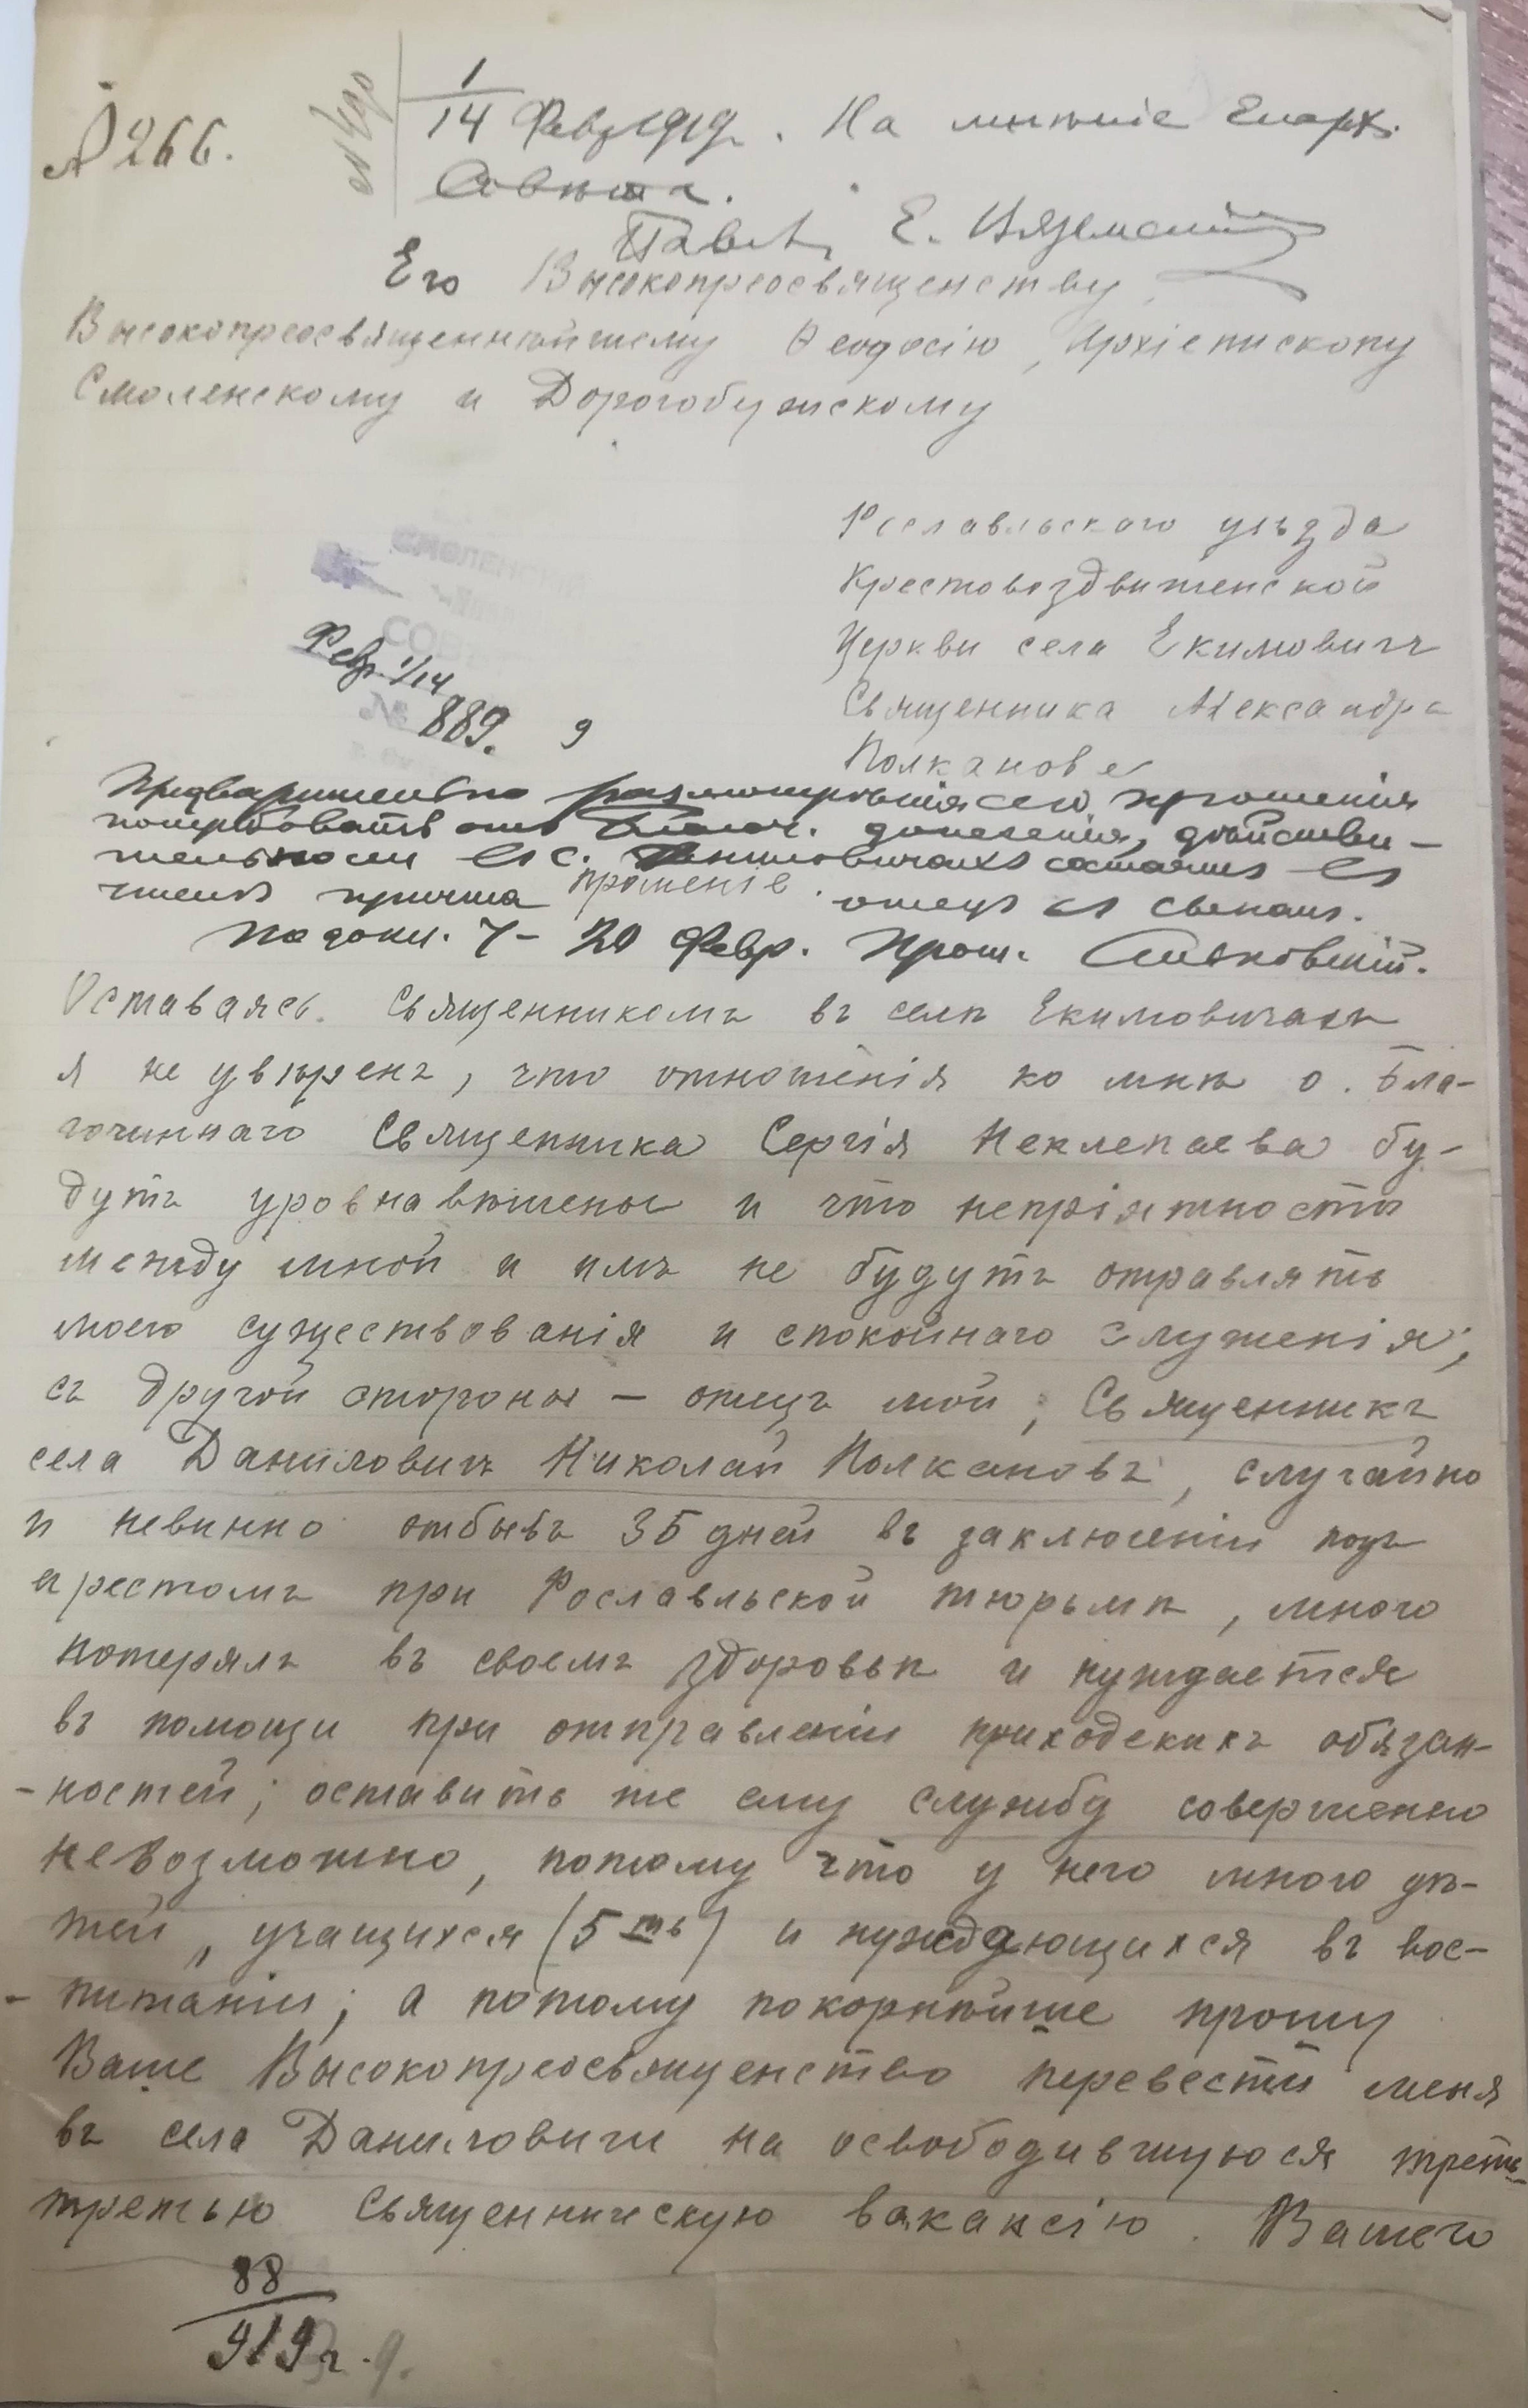 № 266.
1/14 Февр 1919 г. На мнѣніе Епарх.
Совѣта.
Павелъ, Е. Вяземскій
Его Высокопреосвященству
Высокопреосвященнѣйшему Ѳеодосію, Архіепископу
Смоленскому и Дорогобужскому
Рославльскаго уѣзда
Крестовоздвиженской
Церкви села Екимовичъ
Священника Александра
Полканова
Февр. 1/14
№ 889. 9
Предварительно разсмотрѣнія сего прошенія
потребовать отъ Благоч. донесенія, дѣйстви-
тельно ли въ с. Даниловичахъ состоитъ въ
членѣ причта отецъ
прошеніе.
По докл. 7–20 Февр. Прот.
Оставаясь священникомъ въ селѣ Екимовичахъ
я не увѣренъ, что отношенія ко мнѣ о. Бла-
гочиннаго Священника Сергія Неклепаева бу-
дутъ уровновѣшены и что непріятности
между мной и имъ не будутъ отравлять
моего существованія и спокойнаго служенія;
съ другой стороны – отецъ мой, Священникъ
села Даниловичъ Николай Полкановъ, случайно
и невинно отбывъ 35 дней въ заключеніи подъ
арестомъ при Рославльской тюрьмѣ, много
потерялъ въ своемъ здоровьѣ и нуждается
въ помощи при отправленіи приходскихъ обязан-
-ностей; оставить же ему службу совершенно
невозможно, потому что у него много дѣ-
тей, учащихся (5 ть) и нуждающихся въ вос-
-питаніи; а потому покорнѣйше прошу
Ваше Высокопреосвященство перевести меня
въ села Даниловичи на освободившуюся треть-
третью священническую вакансію. Вашего
88
919 г. 9.